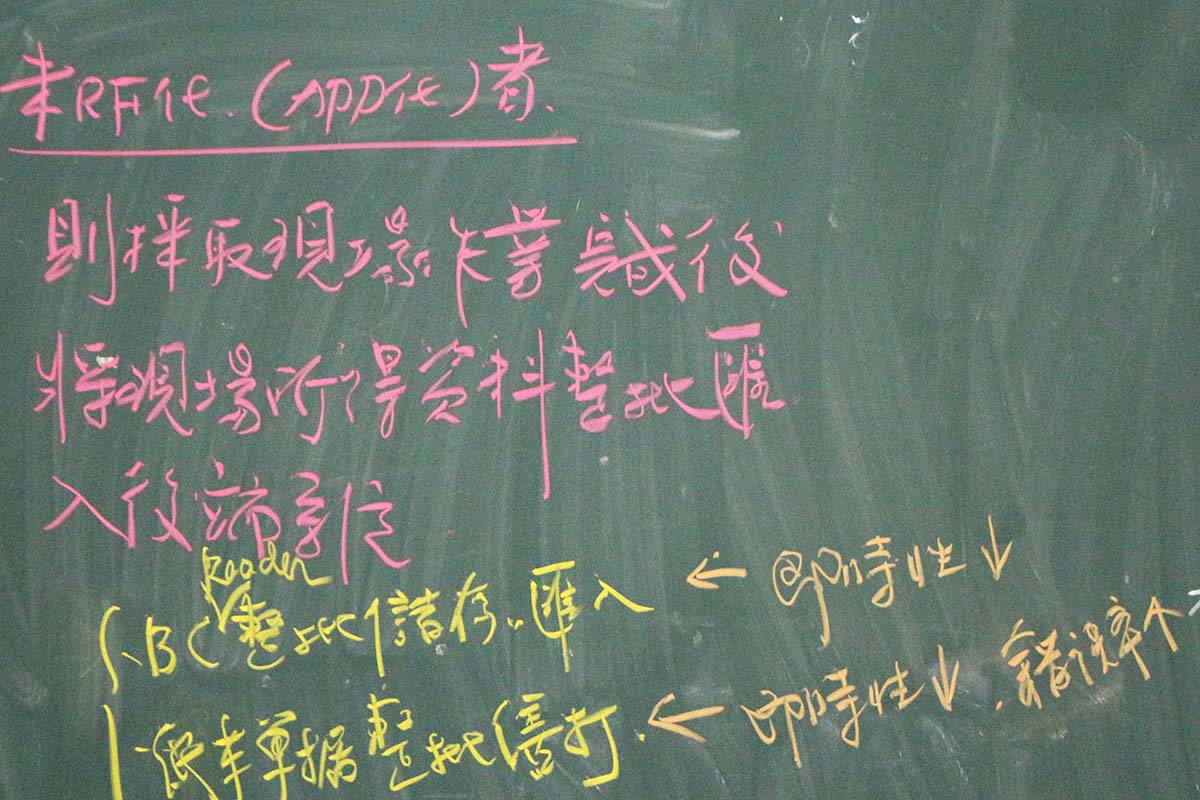 未RF化.(APP化)者.
則採取現場作業完成後
將現場所得資料整批匯
入後端系統
Reader
BC 整批儲存.匯入 ← 即時性↓
依单據整批繕打. ← 即時性↓.錯誤率个